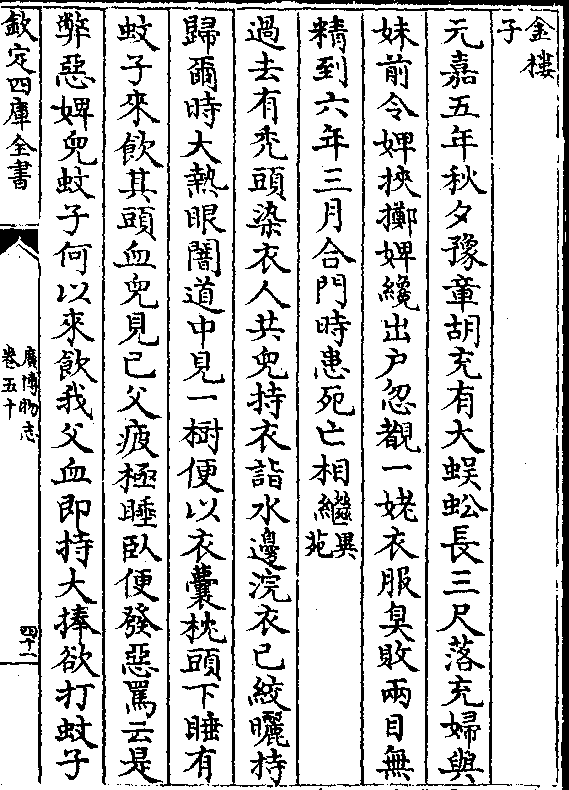 金樓
子
元嘉五年秋夕豫章胡充有大蜈蚣長三尺落充婦與
妹前令婢挾擲婢纔出户忽覩一姥衣服臭敗兩目無
精到六年三月合門時患死亡相繼異
苑
過去有禿頭染衣人共兒持衣詣水邊浣衣已絞曬持
歸爾時大熱眼闇道中見一樹便以衣囊枕頭下睡有
蚊子來飲其頭血兒見己父疲極睡臥便發惡罵云是
弊惡婢兒蚊子何以來飲我父血即持大捧欲打蚊子
欽定四庫全書
廣博物志
卷五十
四十二